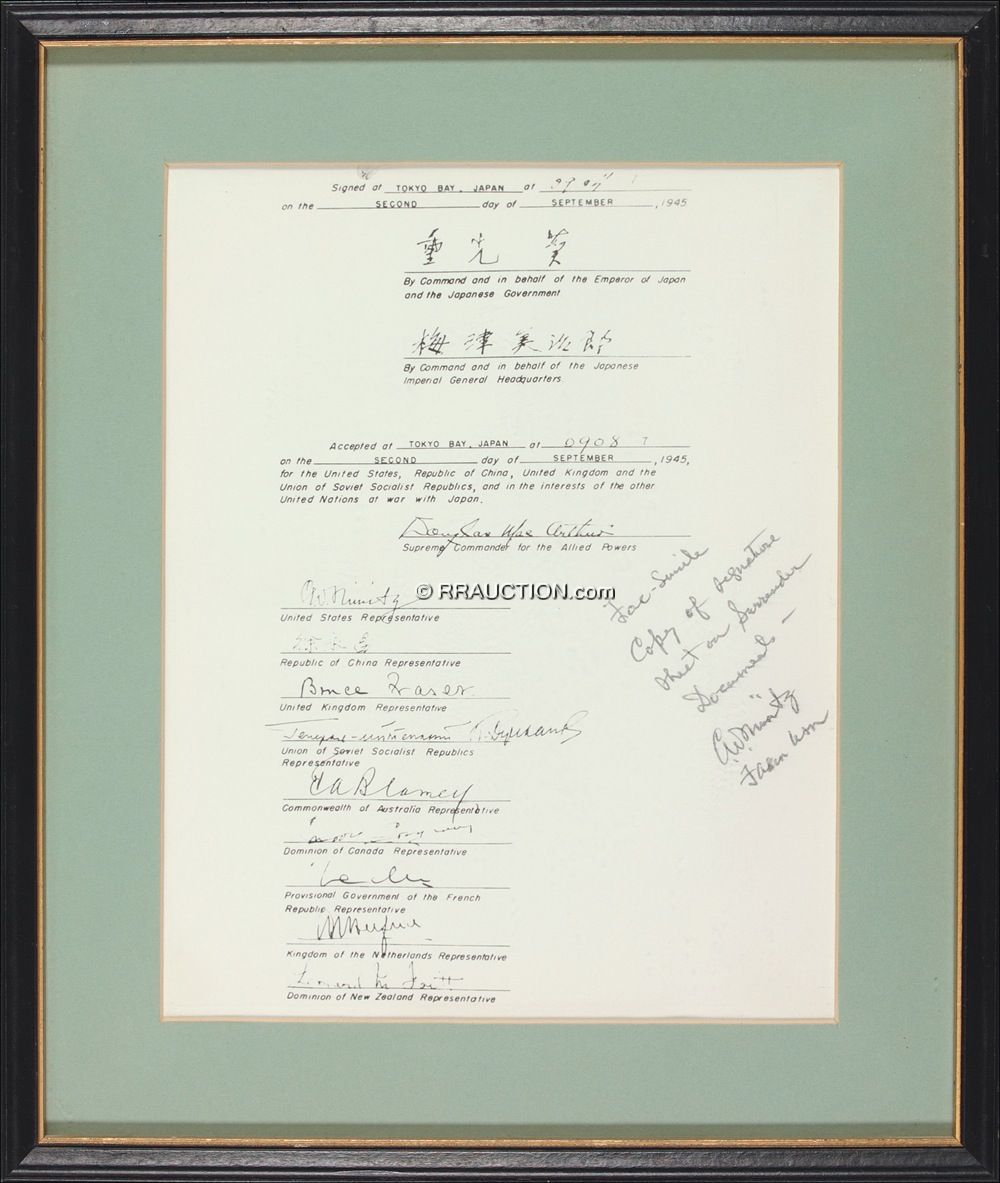 Signed at TOKYO BAY, JAPAN at 0904
on the SECOND day of SEPTEMBER, 1945
重光 葵
By Command and in behalf of the Emperor of Japan
and the Japanese Government
梅津美治郎
By Command and in behalf of the Japanese
Imperial General Headquarters
Accepted at TOKYO BAY, JAPAN at 0908
on the SECOND day of SEPTEMBER, 1945,
for the United States, Republic of China, United Kingdom and the
Union of Soviet Socialist Republics, and in the interests of the other
United Nations at war with Japan.
Douglas MacArthur
Supreme Commander for the Allied Powers
© RRAUCTION.com
C.W. Nimitz
United States Representative
徐永昌
Republic of China Representative
Bruce Fraser
United Kingdom Representative
Union of Soviet Socialist Republics
Representative
T A Blamey
Commonwealth of Australia Representative
Dominion of Canada Representative
Provisional Government of the French
Republic Representative
Kingdom of the Netherlands Representative
Leonard M Isitt
Dominion of New Zealand Representative
Fac-Simile
Copy of signature
sheet on Surrender
Documents –
C.W. Nimitz